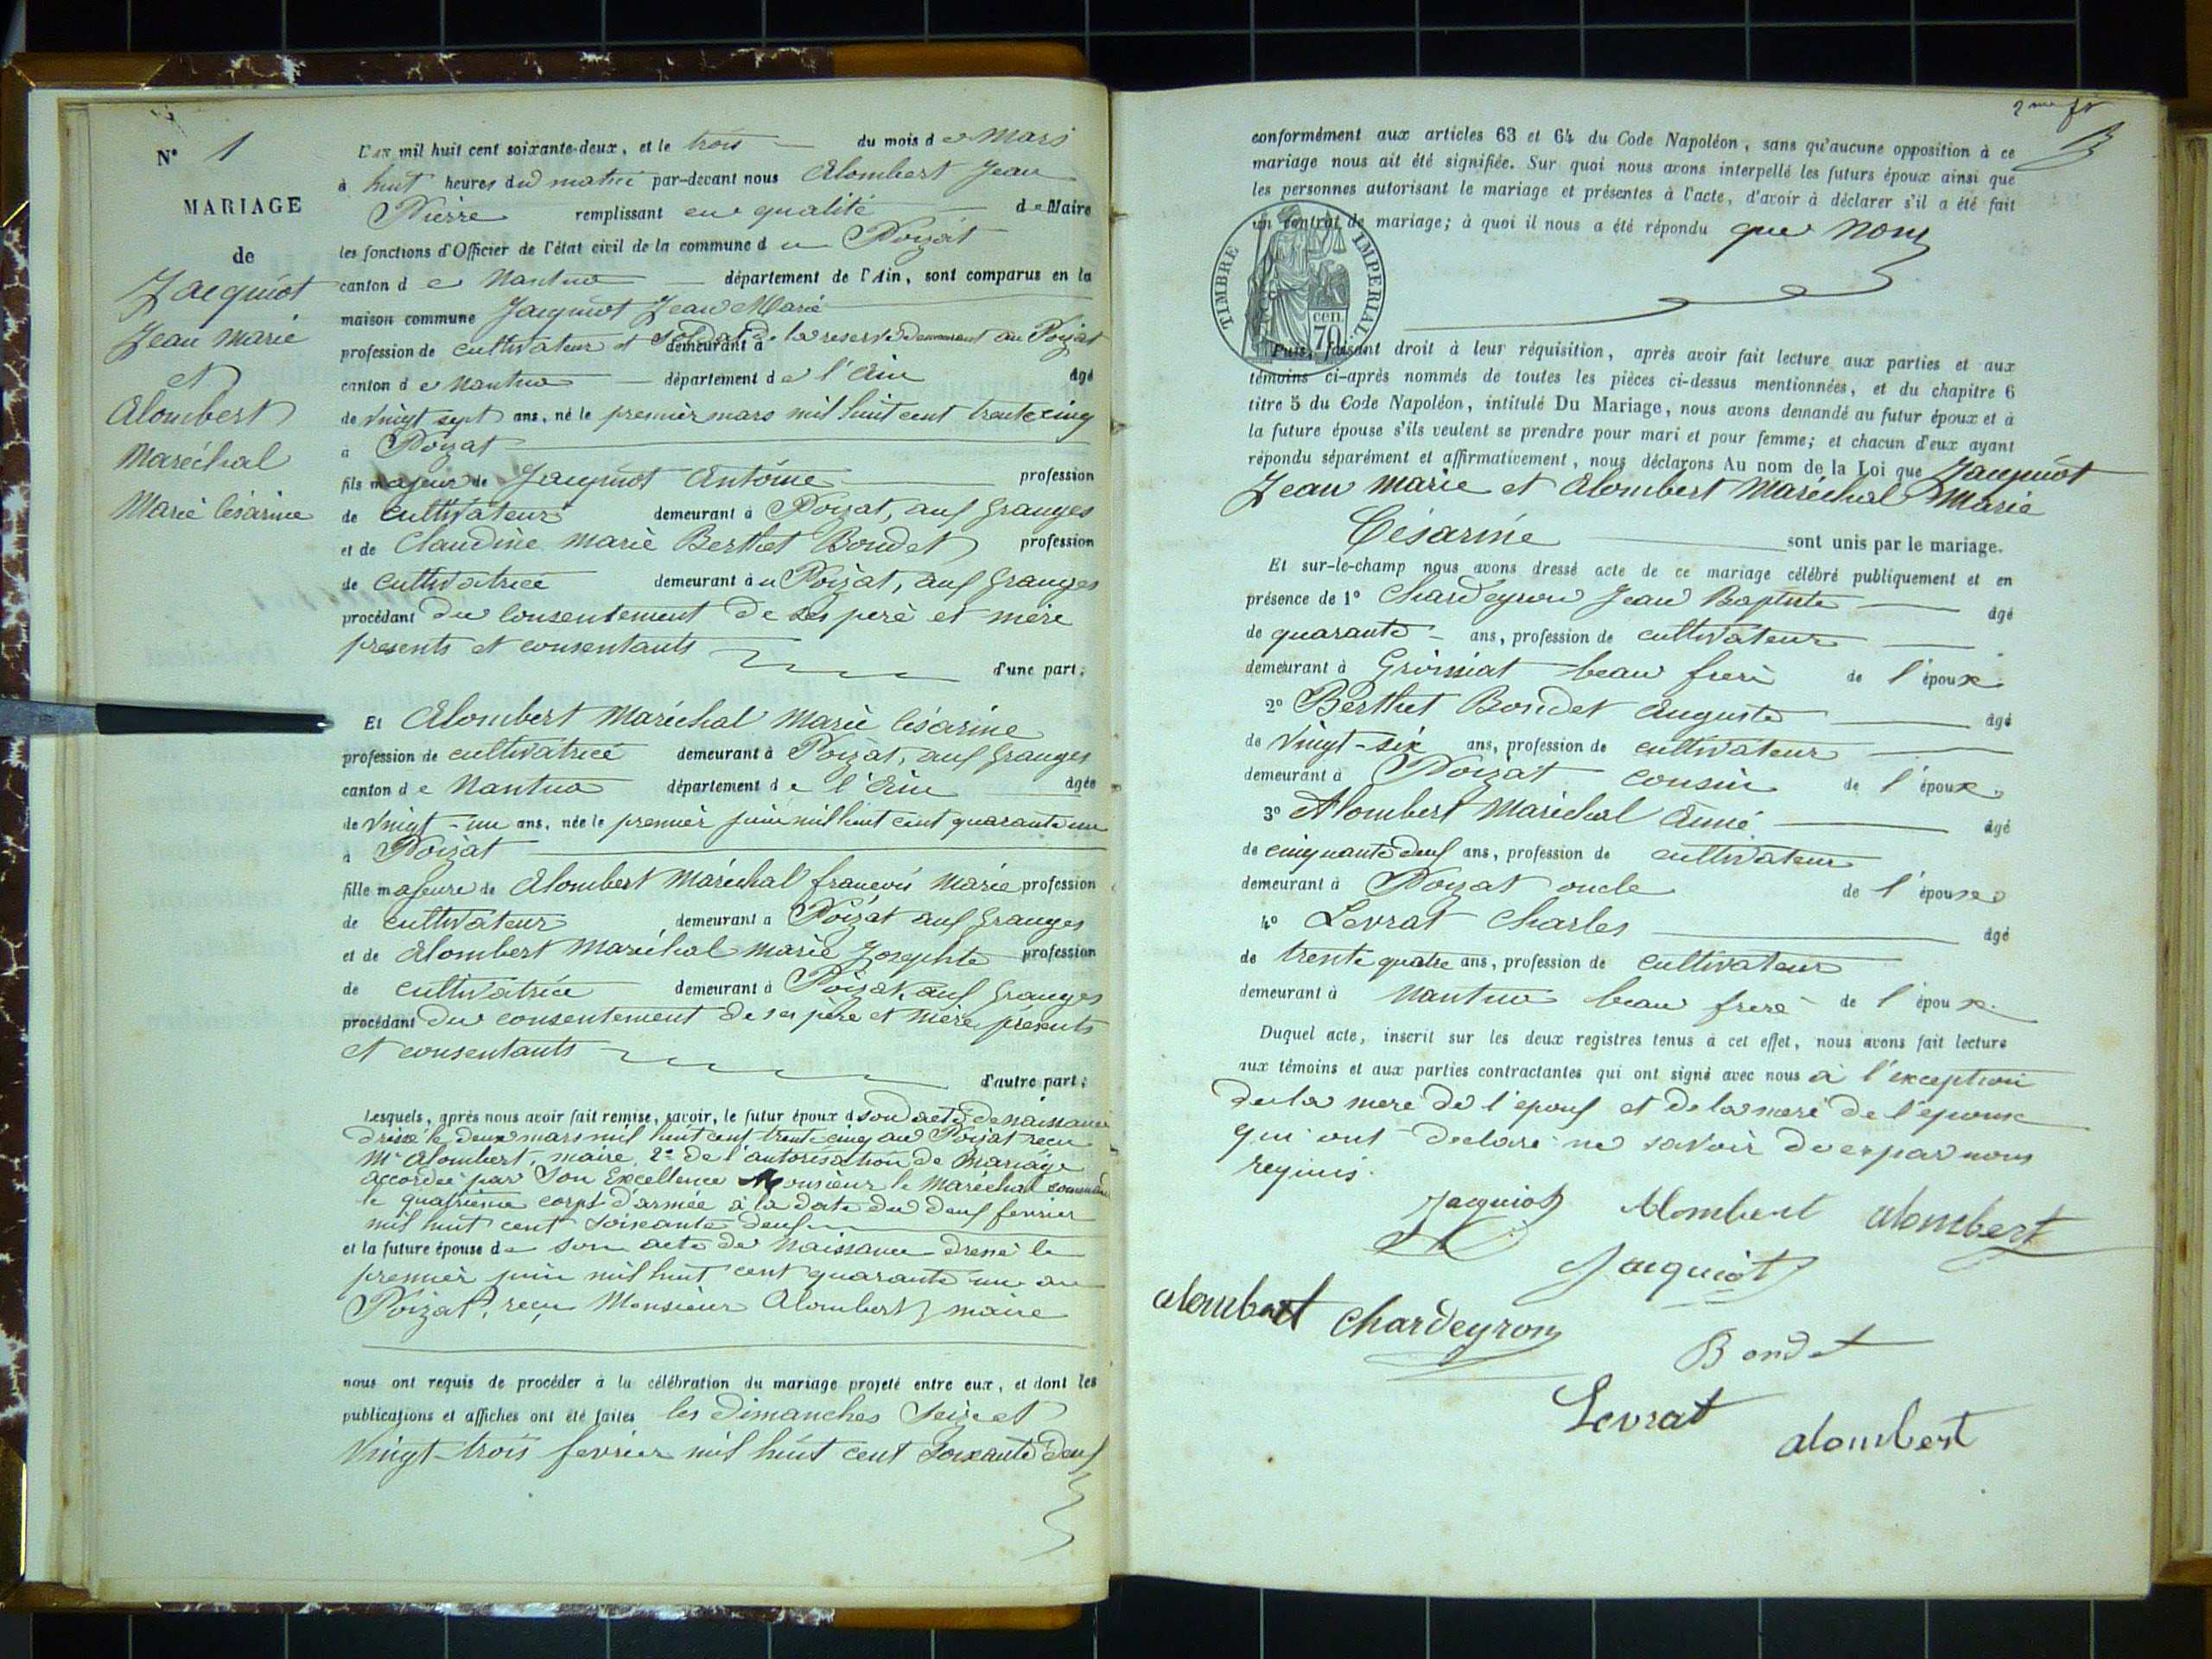 N° 1
MARIAGE
de
Jacquiot
Jean Marie
et
Alombert
Maréchal
Marie Césarine
L'an mil huit cent soixante-deux, et le trois du mois de Mars
à huit heures du matin par-devant nous Alombert Jean
Pierre remplissant en qualité de Maire
les fonctions d'Officier de l'état civil de la commune du Poizat
canton de Nantua département de l'Ain, sont comparus en la
maison commune Jacquiot Jean Marie
profession de cultivateur et soldat de la reserve demeurant au Poizat
demeurant à
canton de Nantua département de l'Ain âgé
de vingt sept ans, né le premier mars mil huit cent trente cinq
à Poizat
fils majeur de Jacquiot Antoine profession
de cultivateur demeurant à Poizat, aux Granges
et de Claudine Marie Berthet Bondet profession
de cultivatrice demeurant au Poizat, aux Granges
procédant du consentement de ses père et mère
présents et consentants
d'une part;
Et Alombert Maréchal Marie Césarine
profession de cultivatrice demeurant à Poizat, aux Granges
canton de Nantua département de l'Ain âgée
de vingt-un ans, née le premier juin mil huit cent quarante un
à Poizat
fille majeure de Alombert Maréchal françois Marie profession
de cultivateur demeurant à Poizat aux Granges
et de Alombert Maréchal Marie Josephte profession
de cultivatrice demeurant à Poizat, aux Granges
procédant du consentement de ses père et mère présents
et consentants
d'autre part;
Lesquels, après nous avoir fait remise, savoir, le futur époux d son acte de naissance
dressé le deux mars mil huit cent trente cinq au Poizat reçu
Mr Alombert, maire, 2° de l'autorisation de Mariage
accordée par Son Excellence Monsieur le Maréchal command
le quatrième corps d'armée à la date du deux fevrier
mil huit cent soixante deux
et la future épouse de son acte de naissance dressé le
premier juin mil huit cent quarante un au
Poizat, reçu Monsieur Alombert, maire
nous ont requis de procéder à la célébration du mariage projeté entre eux, et dont les
publications et affiches ont été faites les Dimanches Seize et
vingt-trois fevrier mil huit cent soixante deux
2me ft
conformément aux articles 63 et 64 du Code Napoléon, sans qu'aucune opposition à ce
mariage nous ait été signifiée. Sur quoi nous avons interpellé les futurs époux ainsi que
les personnes autorisant le mariage et présentes à l'acte, d'avoir à déclarer s'il a été fait
un contrat de mariage; à quoi il nous a été répondu que non
TIMBRE IMPERIAL
70 cen.
Puis, faisant droit à leur réquisition, après avoir fait lecture aux parties et aux
témoins ci-après nommés de toutes les pièces ci-dessus mentionnées, et du chapitre 6
titre 5 du Code Napoléon, intitulé Du Mariage, nous avons demandé au futur époux et à
la future épouse s'ils veulent se prendre pour mari et pour femme; et chacun d'eux ayant
répondu séparément et affirmativement, nous déclarons Au nom de la Loi que Jacquiot
Jean Marie et Alombert Maréchal Marie
Césarine sont unis par le mariage.
Et sur-le-champ nous avons dressé acte de ce mariage célébré publiquement et en
présence de 1° Chardeyron Jean Baptiste âgé
de quarante ans, profession de cultivateur
demeurant à beau frere de l'époux
2° Berthet Bondet Auguste âgé
de vingt-six ans, profession de cultivateur
demeurant à Poizat cousin de l'époux
3° Alombert Maréchal Aimé âgé
de cinquante deux ans, profession de cultivateur
demeurant à Poizat oncle de l'épouse
4° Levrat Charles âgé
de trente quatre ans, profession de cultivateur
demeurant à Nantua beau frere de l'époux
Duquel acte, inscrit sur les deux registres tenus à cet effet, nous avons fait lecture
aux témoins et aux parties contractantes qui ont signé avec nous à l'exception
de la mere de l'époux et de la mere de l'épouse
qui ont declaré ne savoir de ce par nous
requis.
Jacquiot Alombert alombert
Jacquiot
alombert Chardeyron
Bondet
Levrat
alombert